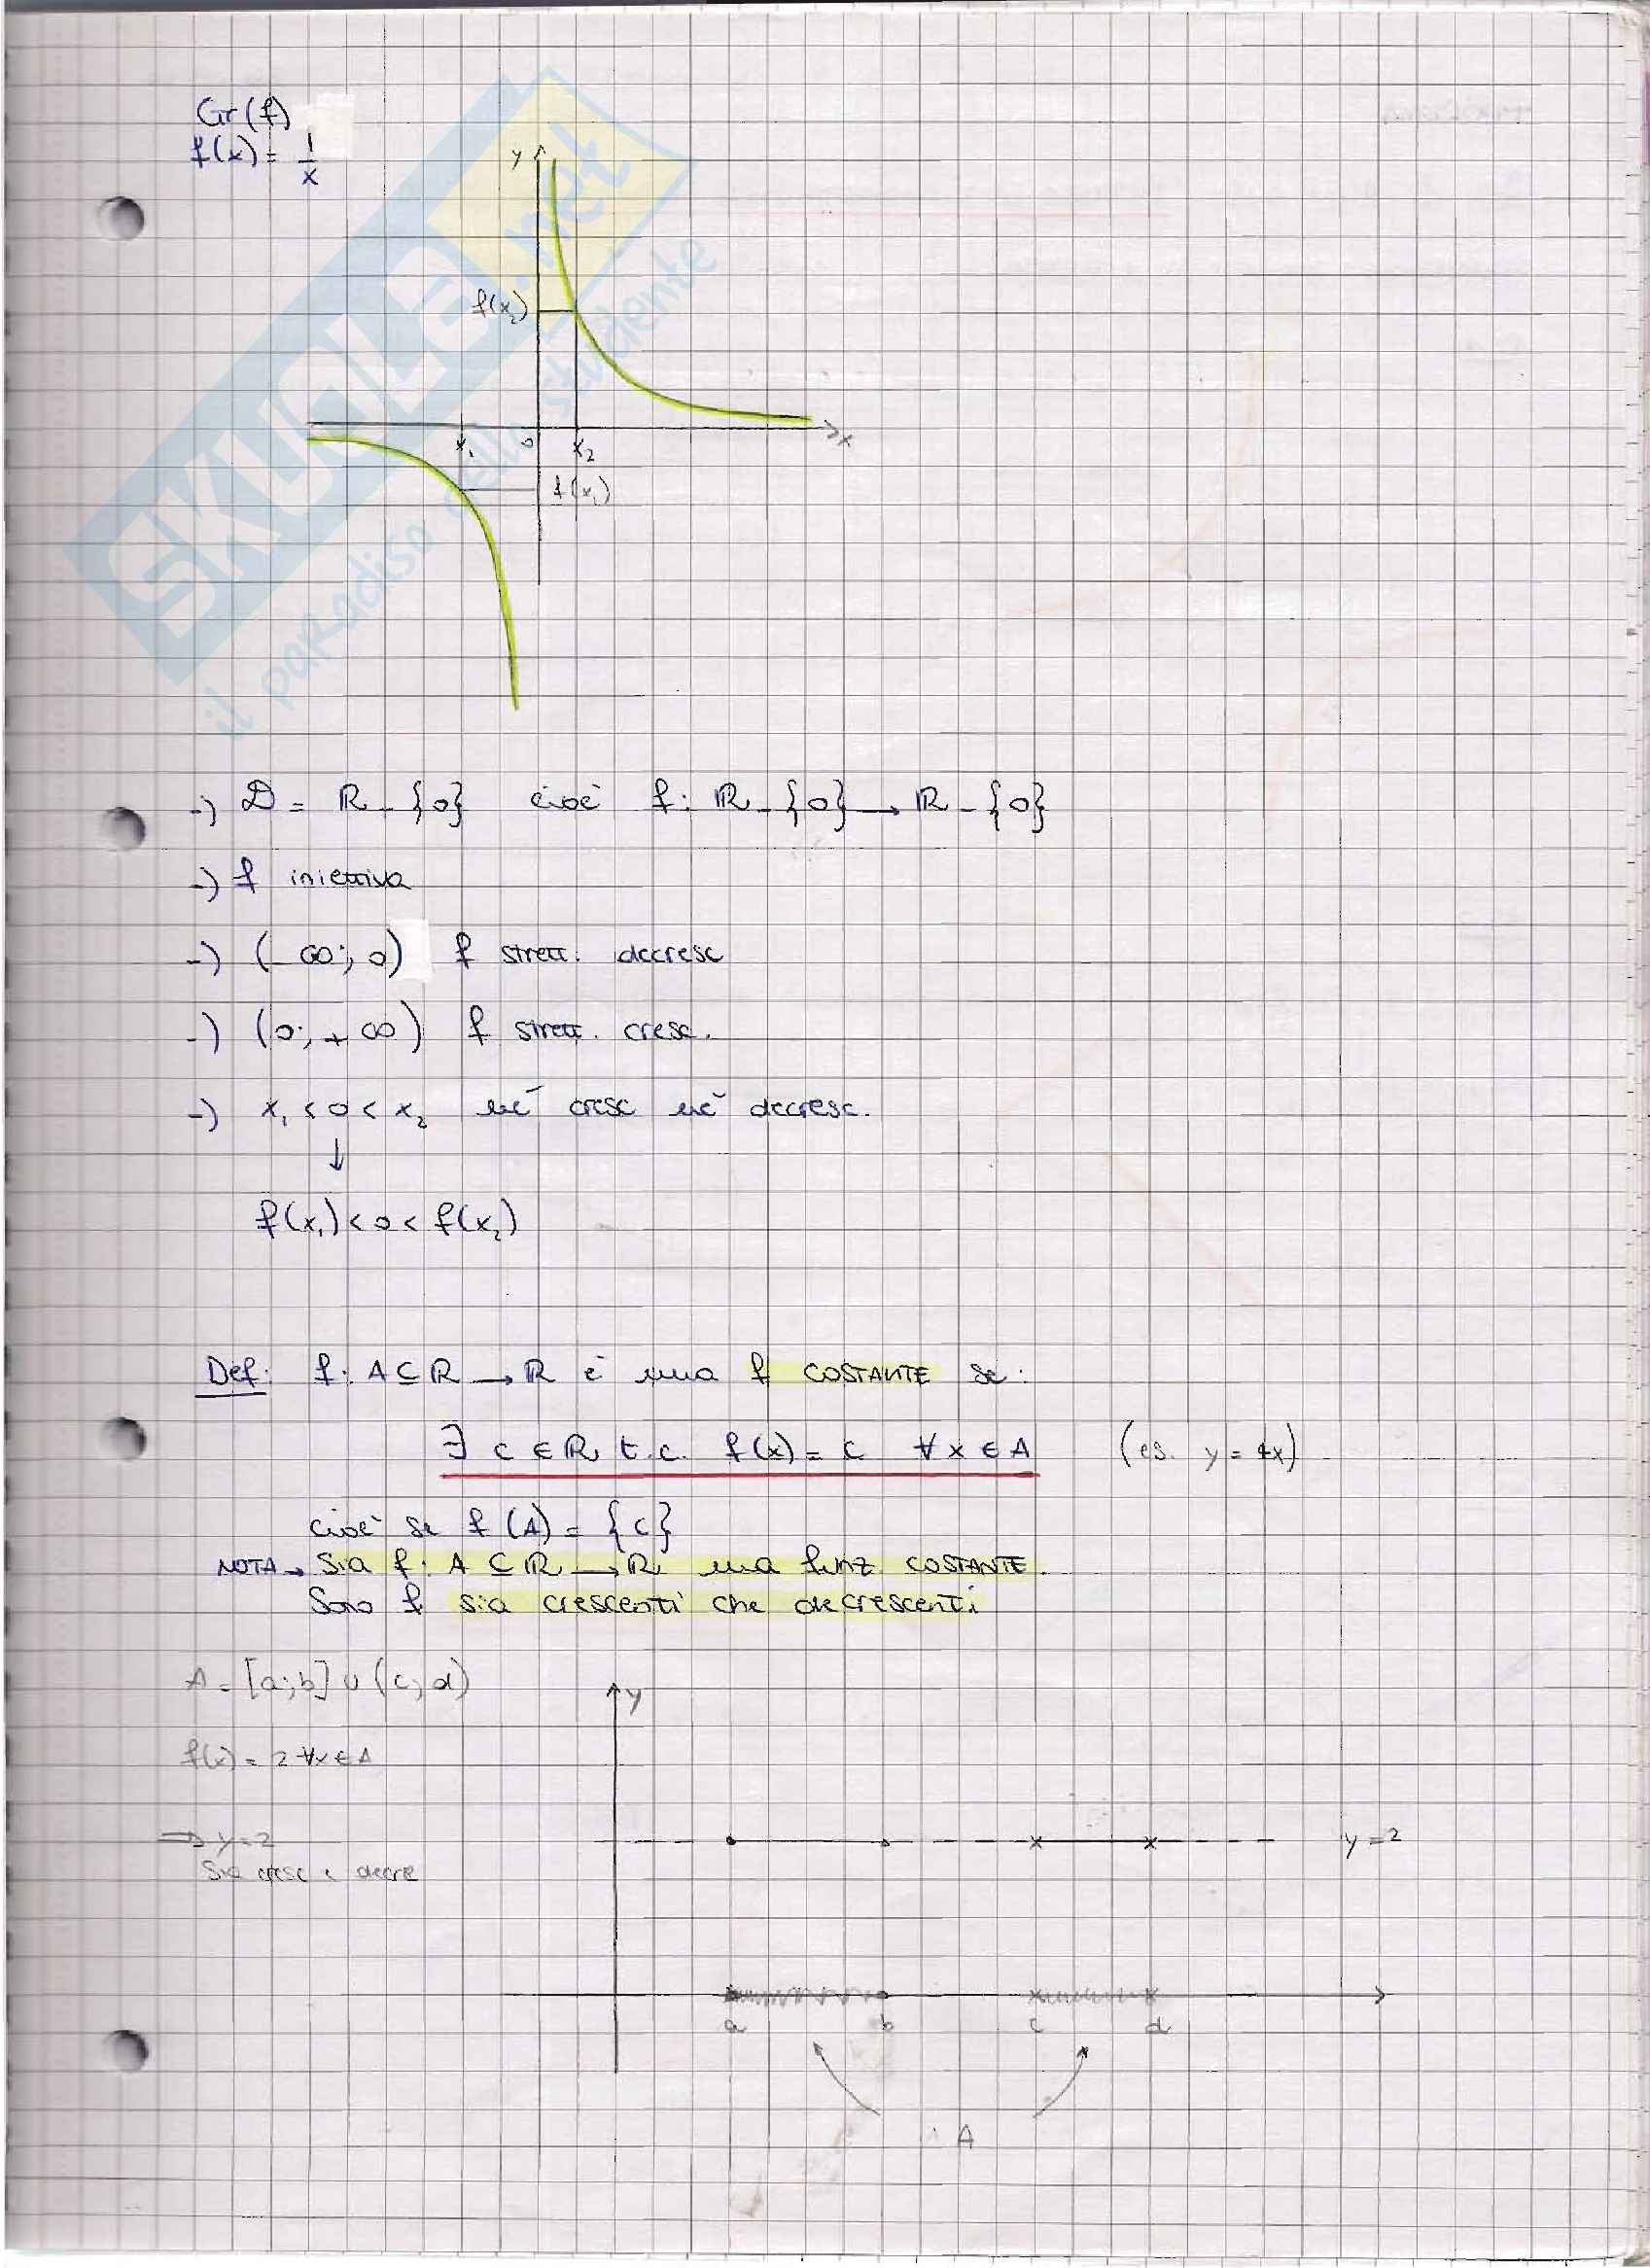 Gr(f)
f(x) = 1/x
y
f(x₂)
x₁ 0 x₂ x
f(x₁)
SKUOLA.net
il paradiso dello studente
-) D = ℝ - {0} cioè f: ℝ - {0} → ℝ - {0}
-) f iniettiva
-) (-∞; 0) f strett. decresc
-) (0; +∞) f strett. cresc.
-) x₁ < 0 < x₂ nè cresc nè decresc.
↓
f(x₁) < 0 < f(x₂)
Def: f: A ⊆ ℝ → ℝ è una f COSTANTE se:
∃ c ∈ ℝ t.c. f(x) = c ∀ x ∈ A (es. y = 4x)
cioè se f(A) = {c}
NOTA → Sia f: A ⊆ ℝ → ℝ una funz. COSTANTE.
Sono f sia crescenti che decrescenti
A = [a; b] ∪ (c; d)
y
f(x) = 2 ∀x ∈ A
⇒ y = 2
y = 2
Sia cresc e decre
a b c d
A